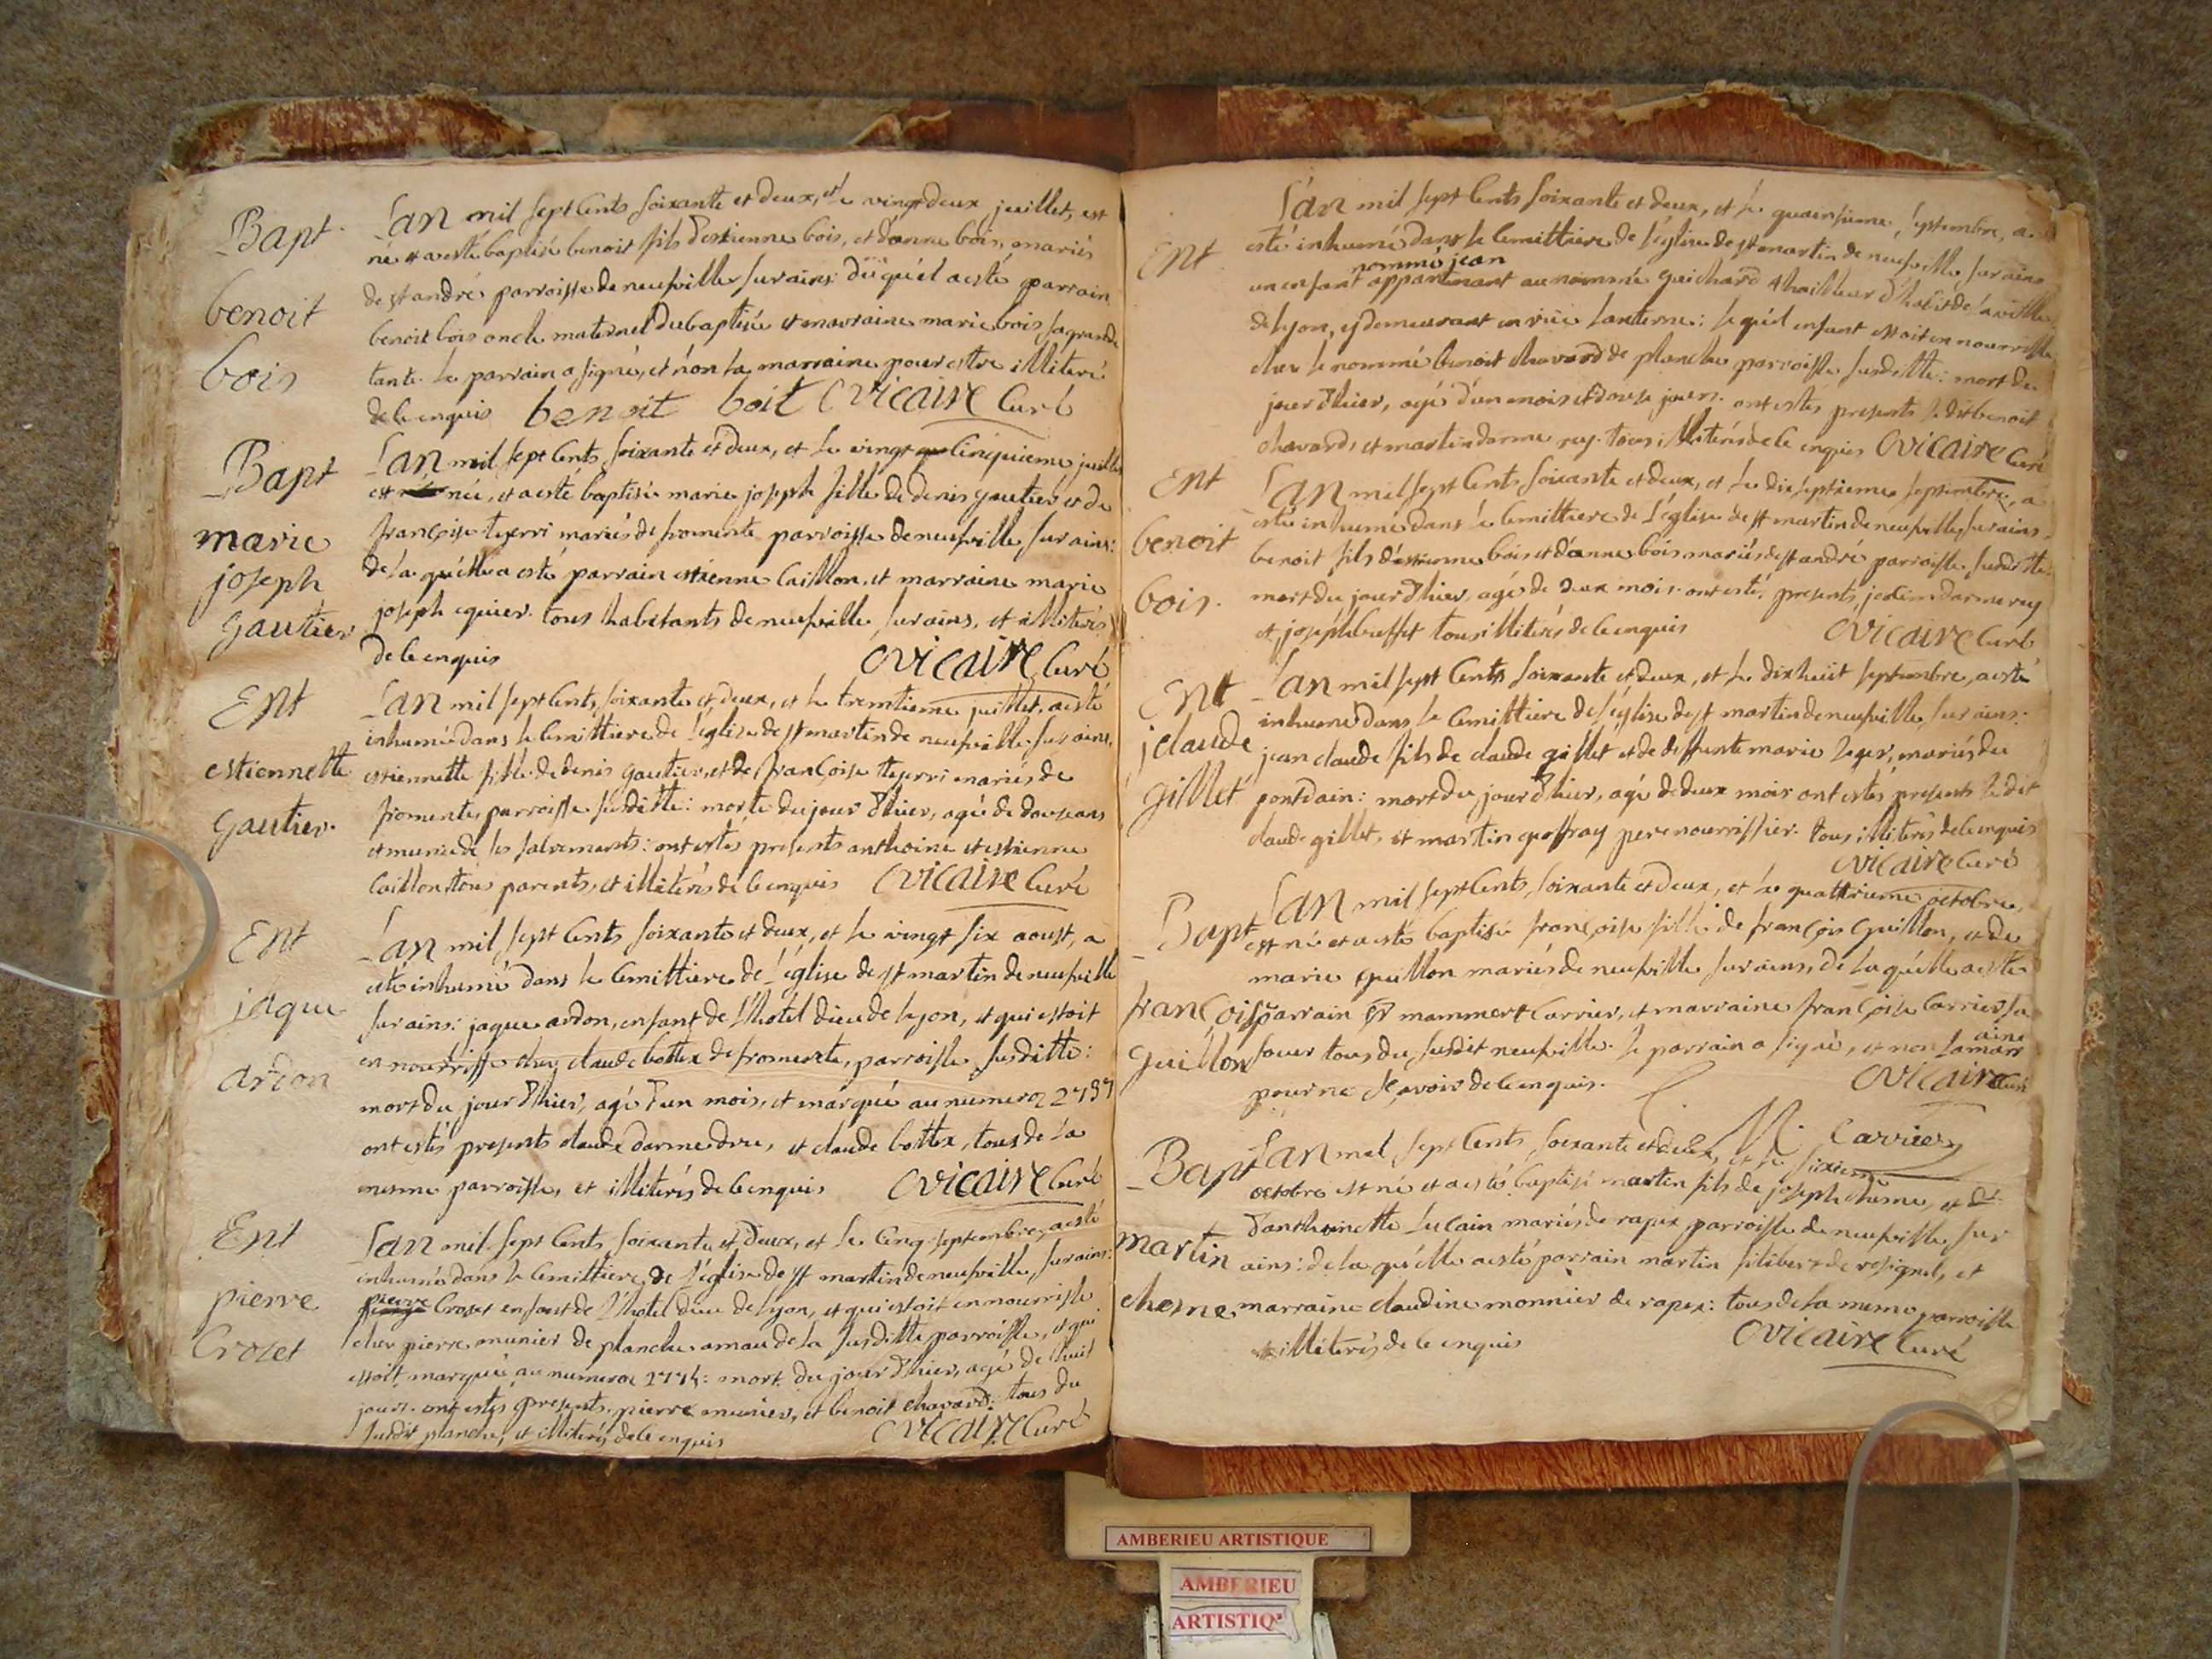 Bapt.
benoit
bois
L'an mil sept cents soixante et deux, et le vingt deux juillet, est
né et a esté baptisé benoit fils d'estienne bois, et d'anne bois, mariés
de st andré parroisse de neufville sur ains: du quél a esté parrain
benoit bois oncle maternel du baptisé et marraine marie bois sa grande
tante. le parrain a signé, et nón la marraine pour estre illiteré
de ce enquis benoit boit Ovicaire Curé
Bapt
marie
joseph
gautier
L'an mil sept cents soixante et deux, et le vingt cinquieme juillet
est née, et a esté baptisée marie joseph fille de denis gautier et de
françoise teyrri mariés de fromente parroisse de neufville sur ains:
de la quélle a esté parrain estienne Caillon, et marraine marie
joseph eguier. tous habitants de neufville sur ains, et illiterés
de ce enquis Ovicaire Curé
Ent
estiennette
gautier.
L'an mil sept cents soixante et deux, et le trentieme juillet, a esté
inhumée dans le cemittiere de l'église de st martin de neufville sur ains,
estiennette fille de denis gautier, et de françoise teyrri mariés de
fromente, parroisse susditte: morte du jour d'hier, agée de douze ans
et munie de ses sacrements: ont estés presents anthoine et estienne
Caillon tous parents, et illiterés de ce enquis Ovicaire Curé
Ent
jaque
ardon
L'an mil sept cents soixante et deux, et le vingt six aoust, a
esté inhumé dans le cemittiere de l'église de st martin de neufville
sur ains: jaque ardon, enfant de l'hotel dieu de lyon, et qui estoit
en nourrisse chez claude bottex de fromente, parroisse susditte:
mort du jour d'hier, agé d'un mois, et marqué au numero 2737
ont estés presents claude darmedru, et claude bottex, tous de la
mesme parroisse, et illiterés de ce enquis Ovicaire Curé
Ent
pierre
Crozet
L'an mil sept cents soixante et deux, et le cinq septembre, a esté
inhumé dans le cemittiere de l'église de st martin de neufville sur ains:
pierre Crozet enfant de l'hotel dieu de lyon, et qui estoit en nourrisse
chez pierre munier de planche arnaud de la susditte parroisse, et qui
estoit marqué au numero: mort du jour d'hier, agé de huit
jours. ont estés presents pierre munier, et benoit chavard: tous du
susdit planche, et illiterés de ce enquis Ovicaire Curé
Ent
L'an mil sept cents soixante et deux, et le quainsieme septembre, a
esté inhumé dans le cemittiere de l'église de st martin de neufville sur ains
nommé jean
un enfant appartenant au nommé guichard thailleur d'habit de la ville
de lyon, y demeurant en ruë lanterne: le quél enfant estoit en nourrisse
chez le nommé benoit chavard de planche parroisse susditte: mort du
jour d'hier, agé d'un mois et douze jours. ont estés presents le dit benoit
chavard, et martin darmerey. tous illiterés de ce enquis Ovicaire Curé
Ent
benoit
bois.
L'an mil sept cents soixante et deux, et le dixseptieme septembre, a
esté inhumé dans le cemittiere de l'église de st martin de neufville sur ains.
benoit fils d'estienne bois et d'anne bois mariés de st andré parroisse susditte:
mort du jour d'hier, agé de deux mois. ont esté presents, darmerey
et joseph buffet tous illiterés de ce enquis Ovicaire Curé
Ent
jclaude
gillet
L'an mil sept cents soixante et deux, et le dixhuit septembre, a esté
inhumé dans le cemittiere de l'église de st martin de neufville sur ains:
jean claude fils de claude gillet et de deffunte marie leger, mariés du
pontdain: mort du jour d'hier, agé de deux mois ont estés presents le dit
claude gillet, et martin geoffray pere nourrissier. tous illiterés de ce enquis
Ovicaire Curé
Bapt
françoise
guillon
L'an mil sept cents soixante et deux, et le quattrieme octobre,
est né et a esté baptisée françoise fille de françois guillon, et de
marie guillon mariés de neufville sur ains, de la quélle a esté
parrain mammert Carrier, et marraine françoise Carrier sa
soeur tous du susdit neufville. le parrain a signé, et non la marr
aine
pour ne sçavoir de ce enquis. Ovicaire Curé
M. Carrier
Bapt
martin
chesne
L'an mil sept cents soixante et deux, et le sixieme
octobre est né et a estés baptisé martin fils de joseph chesne, et de
d'anthoinette lucain mariés de rapex parroisse de neufville sur
ains: de la quélle a esté parrain martin filibert de rosignel, et
marraine claudine monnier de rapex: tous de la mesme parroisse
et illiterés de ce enquis Ovicaire Curé
AMBERIEU ARTISTIQUE
AMBERIEU
ARTISTIQ